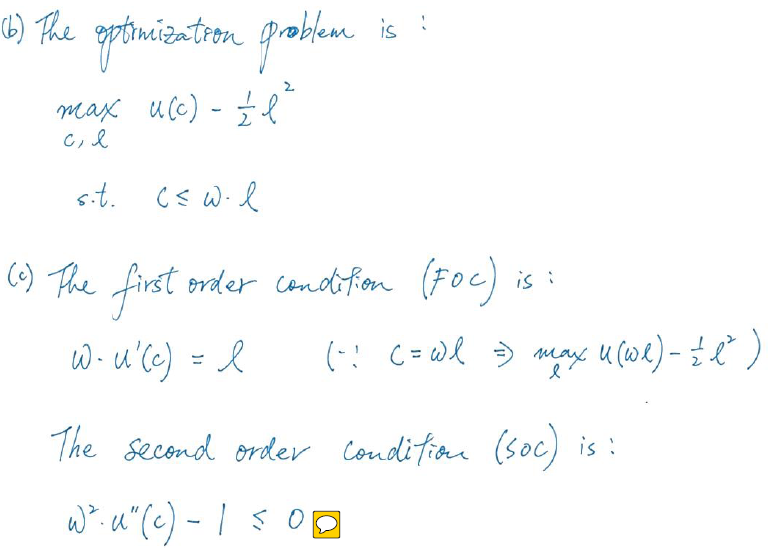 (b) The optimization problem is :
max u(c) - 1/2 l²
c, l
s.t. c ≤ w·l
(c) The first order condition (FOC) is :
w·u'(c) = l (∵ c = wl ⇒ max u(wl) - 1/2 l²)
l
The second order condition (SOC) is :
w²·u''(c) - 1 ≤ 0